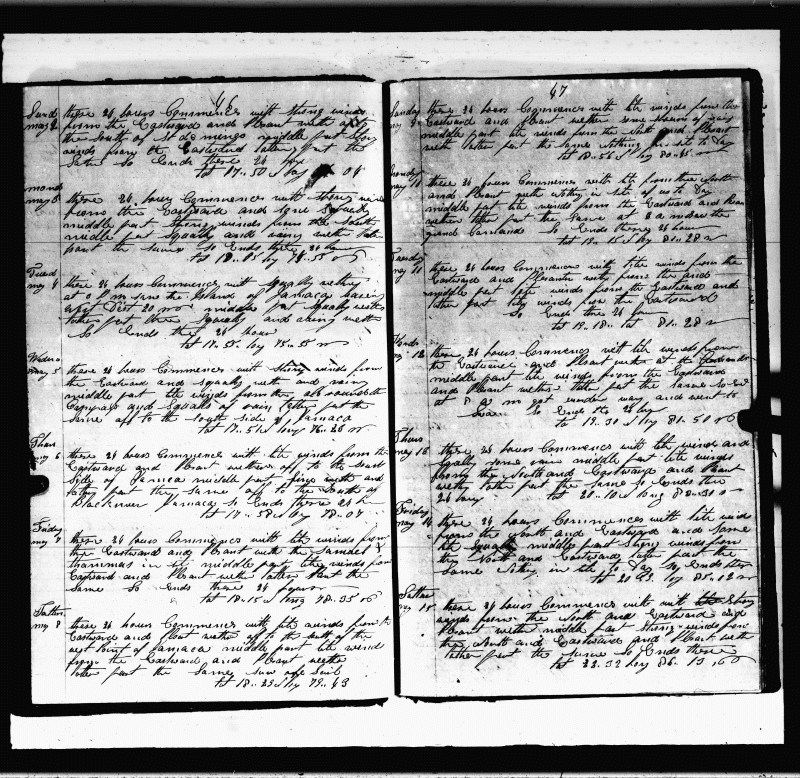 46
Sund may 2 these 24 hours Commences with strong winds
from the Eastward and Pleant wether off
the South of St domingo middle part strong
winds from the Eastward latter part the
Same So Ends these 24 hours
lat 17..50 N long 04
mond may 3 these 24 hours Commences with strong winds
from the Eastward and some squally
middle part strong winds from the South
middle part squally and rainy wether latter
part the same So Ends these 24 hours
lat 18..05 long 74..55
Tuesd may 4 these 24 hours Commences with squally wether
at 0 P m saw the Island of Jamaca baring
West Dist 20 middle part squally wether
latter part these squally and rainy wether
So Ends these 24 hours
lat 17..55 long 75..55
Wedns may 5 these 24 hours Commences with strong winds from
the Eastward and squally weth and rain
middle part lite winds from the all round the
Compass and squalls of rain latter part the
same off to the South Side of Jamaca
lat 17..51 N long 76..26
Thurs may 6 these 24 hours Commences with lite winds from the
Eastward and Pleant wether off to the South
Side of Jamaca middle part fine weth and
latter part the same off to the South of
Jamaca so Ends these 24 hours
lat 17..58 long 78..04
Friday may 7 these 24 hours Commences with lite winds from
the Eastward and Pleant weth the
in site middle part lite winds from
Eastward and Pleant wether latter part the
same So Ends these 24 hours
lat 18..15 N long 78..35
Satters may 8 these 24 hours Commences with lite winds from the
Eastward and pleant wether off to the South of the
west Point of Jamaca middle part lite wind
from the Eastward and Pleant wethe
latter part the Same saw one Sail
lat 18..25 N long 79..43
47
Sunday may 9 these 24 hours Commences with lite winds from the
Eastward and Pleant wether some showers of rain
middle part lite winds from the South and Pleant
weth latter part the same nothing in site to Day
lat 18..56 N long 80..45
Monday may 10 these 24 hours Commences with lite from the North
and Pleant weth nothing in site of us to Day
middle part lite winds from the Eastward and Plean
wether latter part the Same at 8 a m saw the
grand Camands So Ends these 24 hours
lat 19..15 N long 81..28
Tuesday may 11 these 24 hours Commences with lite winds from the
Eastward and Pleasent weth from the and
middle part lite winds from the Eastward and
latter part lite winds from the Eastward
So Ends these 24 hours
lat 19..18 81..28
Weds may 12 these 24 hours Commences with lite winds from
the Eastward and Pleant weth at the
middle part lite winds from the Eastward
and Pleant wether latter part the same So End
at 8 a m got under way and went to
So Ends these 24 hours
lat 19..30 N long 81..50
Thurs may 13 these 24 hours Commences with lite winds and
squally some rain middle part lite winds
from the South and Eastward and Pleant
weth latter part the same So Ends these
24 hours lat 20..10 N long 82..31
Friday may 14 these 24 hours Commences with lite wind
from the North and Eastward and Same
lite squally middle part strong winds from
the North and Eastward latter part the
same nothing in site to Day So Ends these
lat 20..93 long 85..02
Satters may 15 these 24 hours Commences with strong
winds from the North and Eastward and
Pleant wether middle part strong winds from
the North and Eastward and Pleant weth
latter part the same So Ends these
lat 22..32 long 86..13